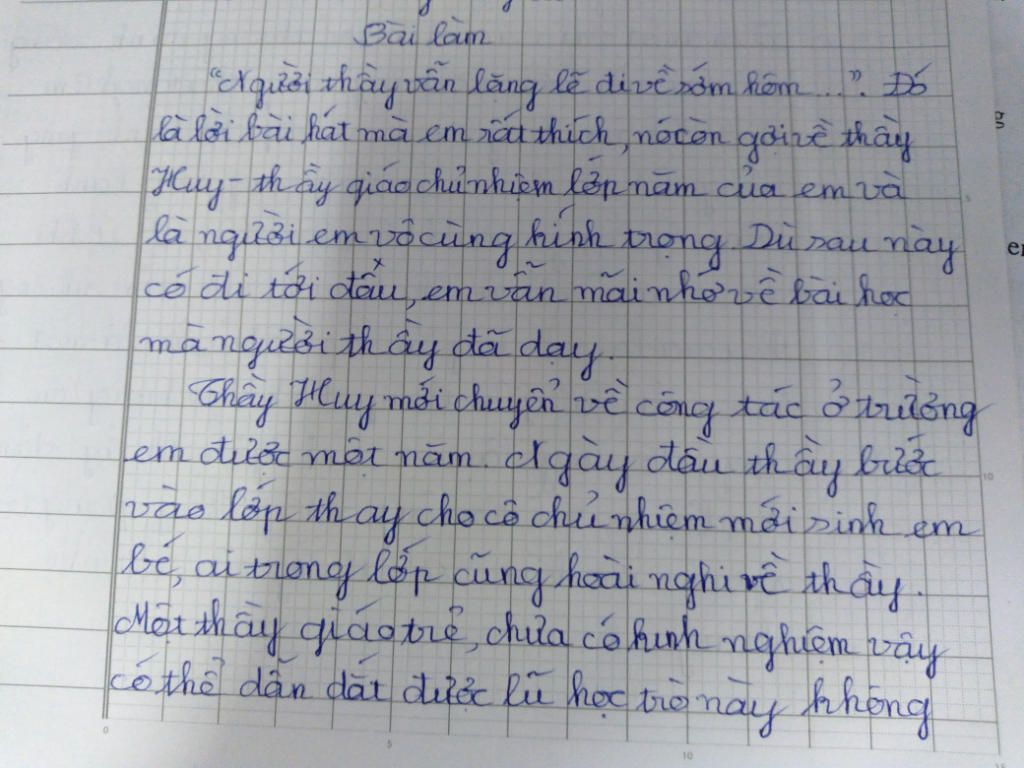 Bài làm
"Người thầy vẫn lặng lẽ đi về sớm hôm...". Đó
là lời bài hát mà em rất thích, nó còn gợi về thầy
Huy - thầy giáo chủ nhiệm lớp năm của em và
là người em vô cùng kính trọng Dù sau này
có đi tới đâu, em vẫn mãi nhớ về bài học
mà người thầy đã dạy.
Thầy Huy mới chuyển về công tác ở trường
em được một năm. Ngày đầu thầy bước
vào lớp thay cho cô chủ nhiệm mới sinh em
bé, ai trong lớp cũng hoài nghi về thầy.
Một thầy giáo trẻ, chưa có kinh nghiệm vậy
có thể dẫn dắt được lũ học trò này không
0 5 10 15
5
10
g
er